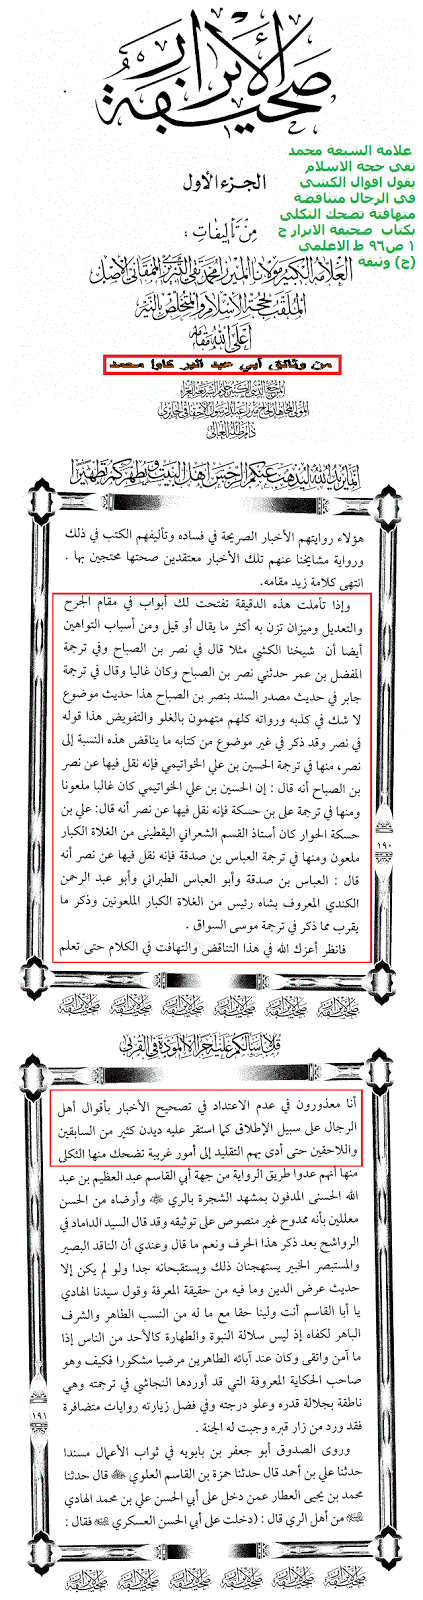 صحيفة الأبرار
علامة الشيعة محمد
تقي حجة الاسلام
يقول اقوال الكشي
في الرجال متناقضة
متهافتة تضحك الثكلى
بكتاب صحيفة الابرار ج
١ ص٩٦ ط الاعلمي
(ج) وثيقة
الجزء الأول
من تأليفات :
العلامة الكبير مولانا الميرزا محمد تقي التبريزي الممقاني الأصل
الملقب بحجة الإسلام والمتخلص بالنير
أعلى الله مقامه
من وثائق أبي عبد البر كاوا محمد
إنما يريد الله ليذهب عنكم الرجس أهل البيت ويطهركم تطهيرا
هؤلاء روايتهم الأخبار الصريحة في فساده وتأليفهم الكتب في ذلك
ورواية مشايخنا عنهم تلك الأخبار معتقدين صحتها محتجين بها .
انتهى كلامه زيد مقامه.
وإذا تأملت هذه الدقيقة تفتحت لك أبواب في مقام الجرح
والتعديل وميزان تزن به أكثر ما يقال أو قيل ومن أسباب التواهين
أيضا أن شيخنا الكشي مثلا قال في نصر بن الصباح وفي ترجمة
المفضل بن عمر حدثني نصر بن الصباح وكان غاليا وقال في ترجمة
جابر في حديث مصدر السند بنصر بن الصباح هذا حديث موضوع
لا شك في كذبه ورواته كلهم متهمون بالغلو والتفويض هذا قوله
في نصر وقد ذكر في غير موضوع من كتابه ما يناقض هذه النسبة إلى
نصر، منها في ترجمة الحسين بن علي الخواتيمي فإنه نقل فيها عن نصر
بن الصباح أنه قال : إن الحسين بن علي الخواتيمي كان غاليا ملعونا
ومنها في ترجمة علي بن حسكة فإنه نقل فيها عن نصر أنه قال: علي بن
حسكة الحوار كان أستاذ القسم الشعراني اليقطيني من الغلاة الكبار
ملعون ومنها في ترجمة العباس بن صدقة فإنه نقل فيها عن نصر أنه
قال : العباس بن صدقة وأبو العباس الطبراني وأبو عبد الرحمن
الكندي المعروف بشاه رئيس من الغلاة الكبار الملعونين وذكر ما
يقرب مما ذكر في ترجمة موسى السواق .
فانظر أعزك الله في هذا التناقض والتهافت في الكلام حتى تعلم
١٩٠
صحيفة الأبرار صحيفة الأبرار صحيفة الأبرار صحيفة الأبرار صحيفة الأبرار صحيفة الأبرار
قل لا أسألكم عليه أجرا إلا المودة في القربى
أنا معذورون في عدم الاعتداد في تصحيح الأخبار بأقوال أهل
الرجال على سبيل الإطلاق كما استقر عليه ديدن كثير من السابقين
واللاحقين حتى أدى بهم التقليد إلى أمور غريبة تضحك منها الثكلى
منها أنهم عدوا طريق الرواية من جهة أبي القاسم عبد العظيم بن عبد
الله الحسنى المدفون بمشهد الشجرة بالري وأرضاه من الحسن
معللين بأنه ممدوح غير منصوص على توثيقه وقد قال السيد الداماد في
الرواشح بعد ذكر هذا الحرف ونعم ما قال وعندي أن الناقد البصير
والمستبصر الخبير يستهجنان ذلك ويستقبحانه جدا ولو لم يكن إلا
حديث عرض الدين وما فيه من حقيقة المعرفة وقول سيدنا الهادي
يا أبا القاسم أنت ولينا حقا مع ما له من النسب الطاهر والشرف
الباهر لكفاه إذ ليس سلالة النبوة والطهارة كالأحد من الناس إذا
ما آمن واتقى وكان عند آبائه الطاهرين مرضيا مشكورا فكيف وهو
صاحب الحكاية المعروفة التي قد أوردها النجاشي في ترجمته وهي
ناطقة بجلالة قدره وعلو درجته وفي فضل زيارته روايات متضافرة
فقد ورد من زار قبره وجبت له الجنة .
وروى الصدوق أبو جعفر بن بابويه في ثواب الأعمال مسندا
حدثنا علي بن أحمد قال حدثنا حمزة بن القاسم العلوي قال حدثنا
محمد بن يحيى العطار عمن دخل على أبي الحسن علي بن محمد الهادي
من أهل الري قال : (دخلت على أبي الحسن العسكري فقال :
١٩١
صحيفة الأبرار صحيفة الأبرار صحيفة الأبرار صحيفة الأبرار صحيفة الأبرار صحيفة الأبرار